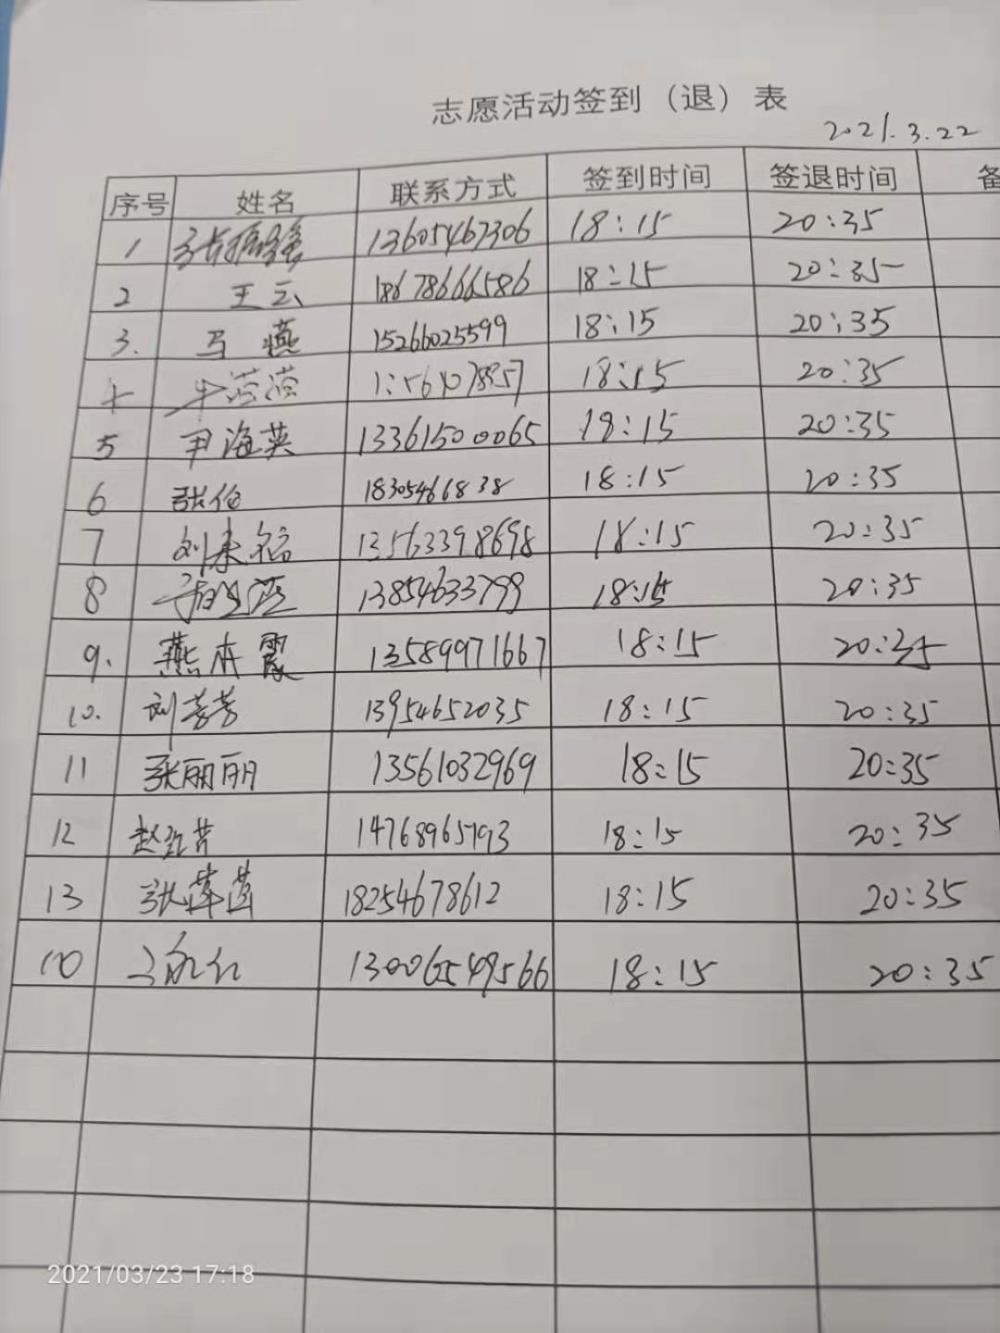 志愿活动签到（退）表
2021.3.22
序号 姓名 联系方式 签到时间 签退时间 备
1 13605467306 18:15 20:35
2 王云 18678666586 18:15 20:35
3. 马燕 15266025599 18:15 20:35
18:15 20:35
5 尹海英 13361500065 18:15 20:35
6 张伯 18305466838 18:15 20:35
7 13563398698 18:15 20:35
8 13854633799 18:15 20:35
9. 燕本霞 13589971667 18:15 20:35
10. 刘芳芳 13954652035 18:15 20:35
11 张丽丽 13561032969 18:15 20:35
12 14768965793 18:15 20:35
13 18254678612 18:15 20:35
13006549566 18:15 20:35
2021/03/23 17:18